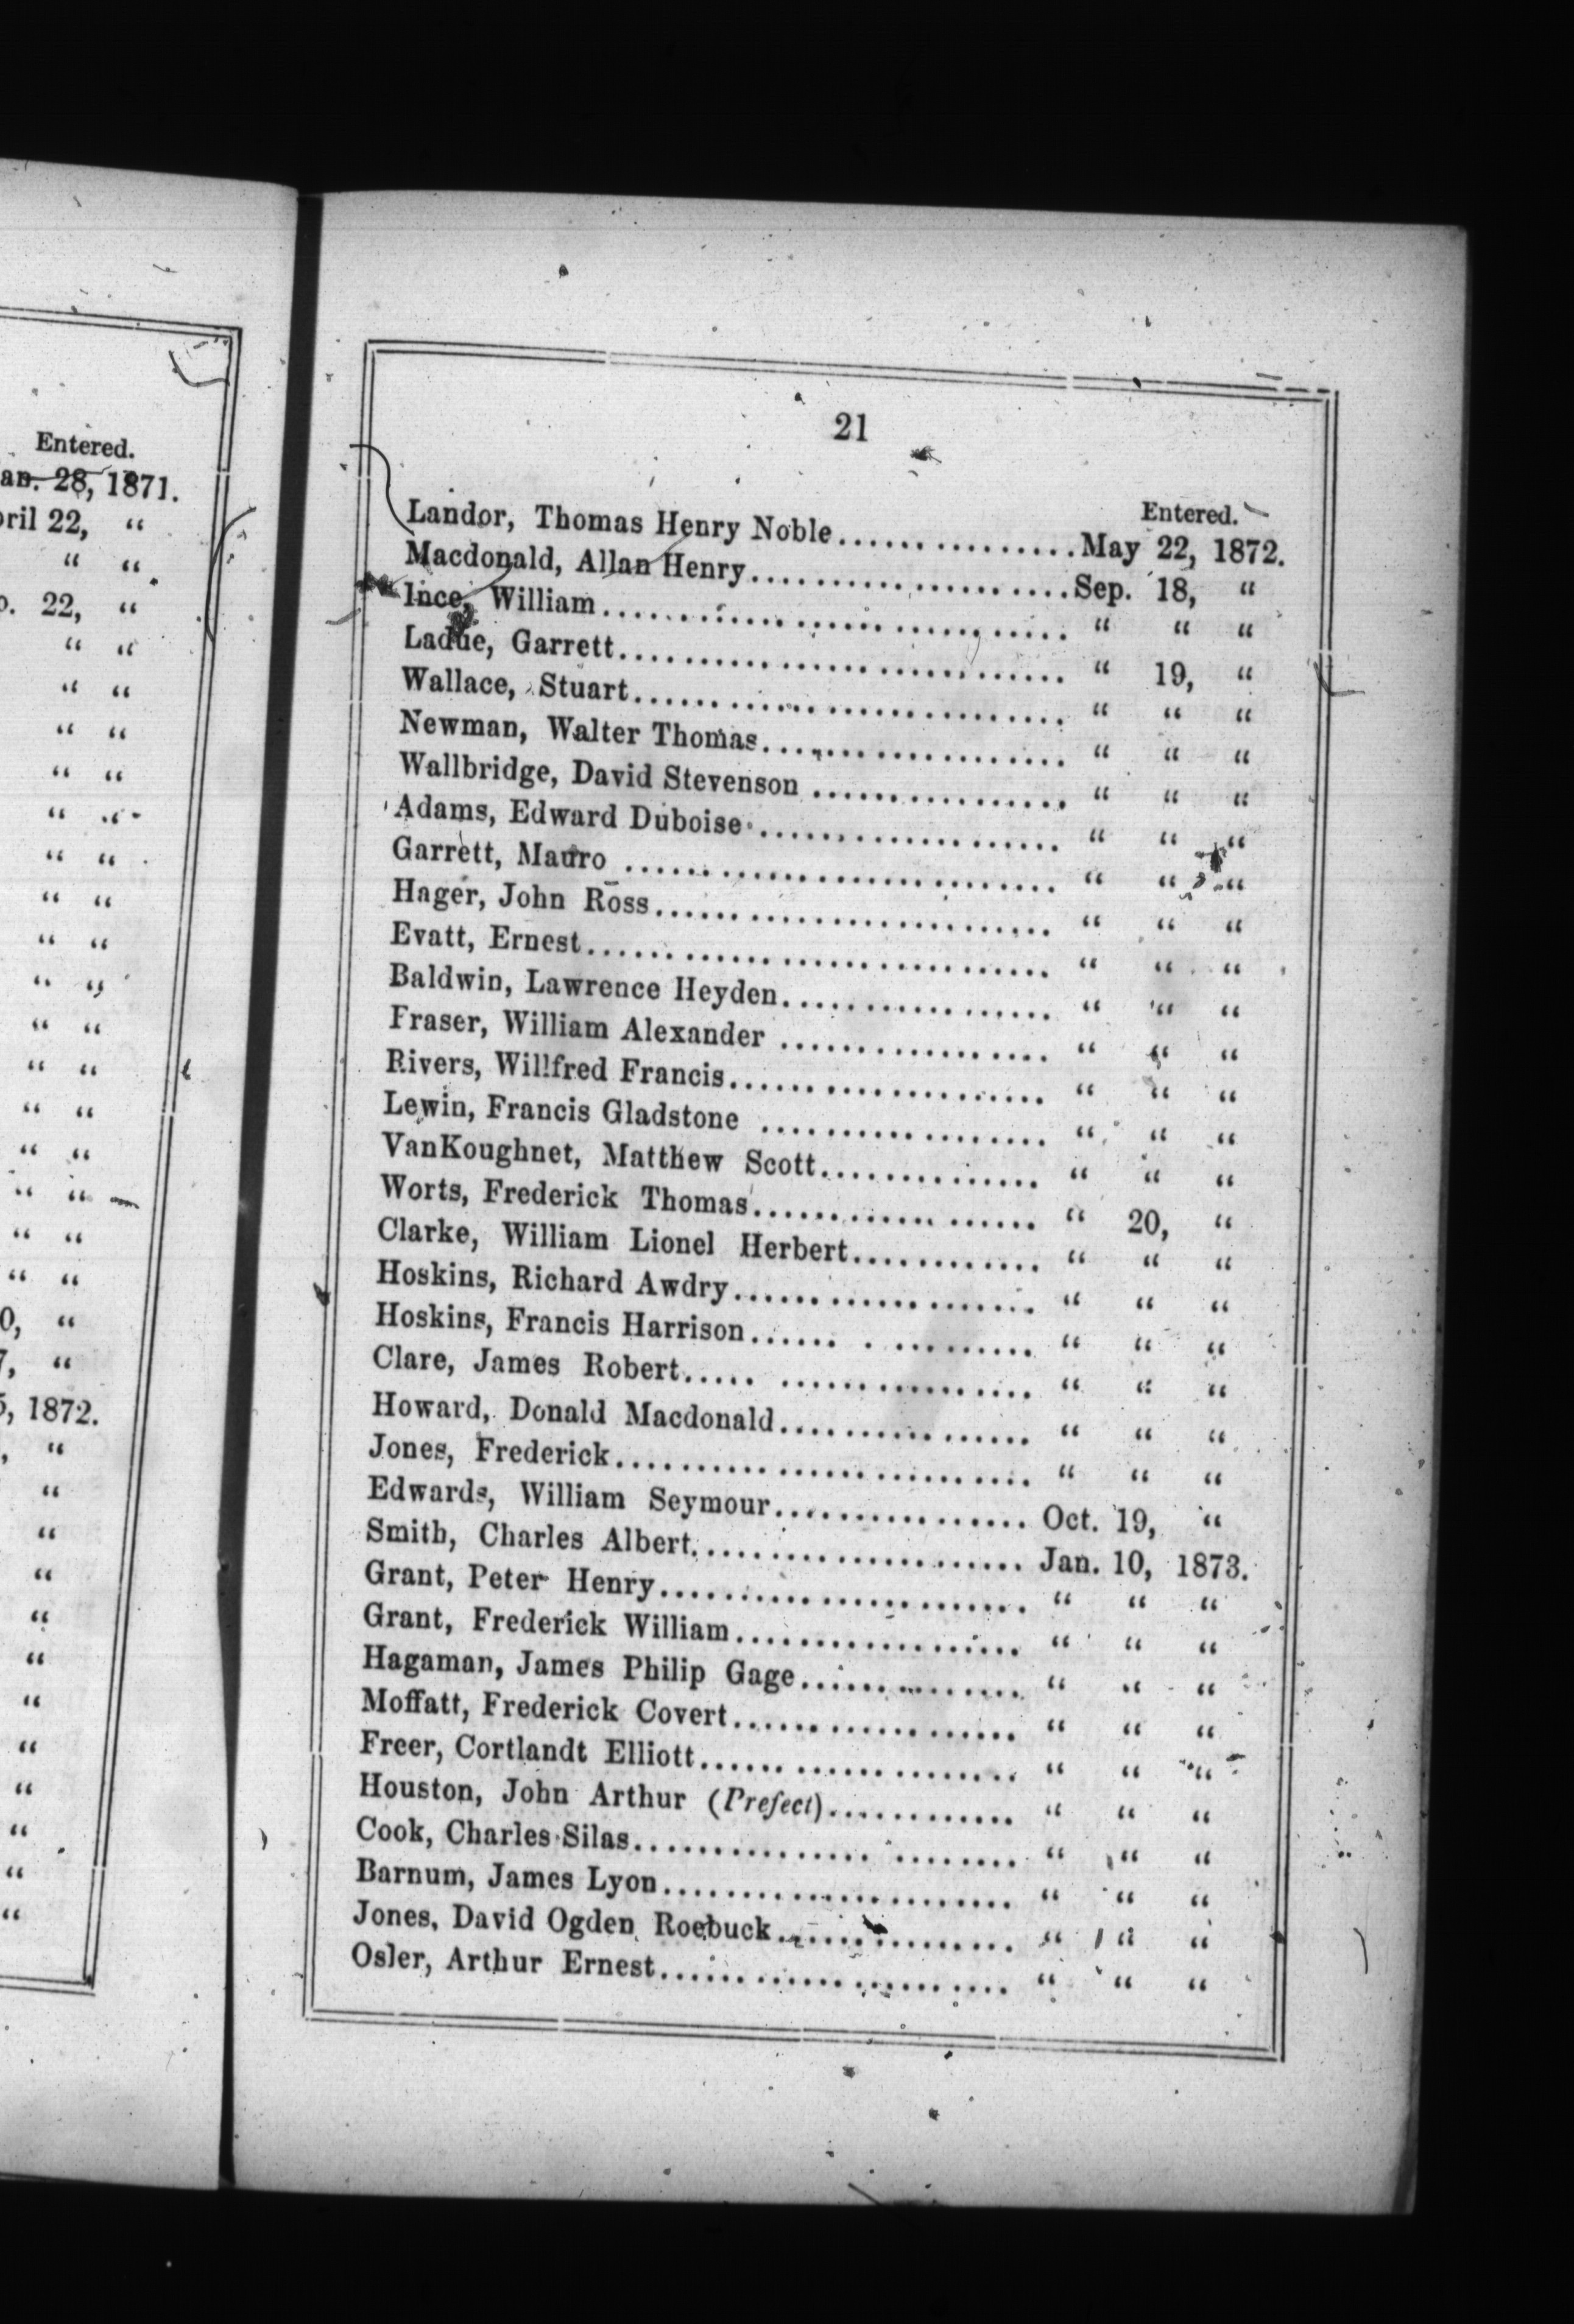 Entered.
an. 28, 1871.
ril 22, “
“ “
22, “
“ “
“ “
“ “
“ “
“ “
“ “
“ “
“ “
“ “
“ “
“ “
“ “
“ “
“ “
“ “
“ “
0, “
7, “
5, 1872.
, “
“
“
“
“
“
“
“
“
“
“
“
21
Entered.
Landor, Thomas Henry Noble...............May 22, 1872.
Macdonald, Allan Henry....................Sep. 18, “
Ince, William............................. “ “ “
Ladue, Garrett............................ “ 19, “
Wallace, Stuart........................... “ “ “
Newman, Walter Thomas................... “ “ “
Wallbridge, David Stevenson ................ “ “ “
Adams, Edward Duboise ................... “ “ “
Garrett, Mauro ........................... “ “ “
Hager, John Ross......................... “ “ “
Evatt, Ernest............................. “ “ “
Baldwin, Lawrence Heyden................. “ “ “
Fraser, William Alexander ................. “ “ “
Rivers, Willfred Francis.................... “ “ “
Lewin, Francis Gladstone .................. “ “ “
VanKoughnet, Matthew Scott.............. “ “ “
Worts, Frederick Thomas.................. “ 20, “
Clarke, William Lionel Herbert............ “ “ “
Hoskins, Richard Awdry................... “ “ “
Hoskins, Francis Harrison...... . .......... “ “ “
Clare, James Robert..... ................ “ “ “
Howard, Donald Macdonald................ “ “ “
Jones, Frederick.......................... “ “ “
Edwards, William Seymour................ Oct. 19, “
Smith, Charles Albert..................... Jan. 10, 1873.
Grant, Peter Henry....................... “ “ “
Grant, Frederick William.................. “ “ “
Hagaman, James Philip Gage.............. “ “ “
Moffatt, Frederick Covert.................. “ “ “
Freer, Cortlandt Elliott.................... “ “ “
Houston, John Arthur (Prefect)............ “ “ “
Cook, Charles Silas............... ........ “ “ “
Barnum, James Lyon...................... “ “ “
Jones, David Ogden Roebuck............... “ “ “
Osler, Arthur Ernest...................... “ “ “